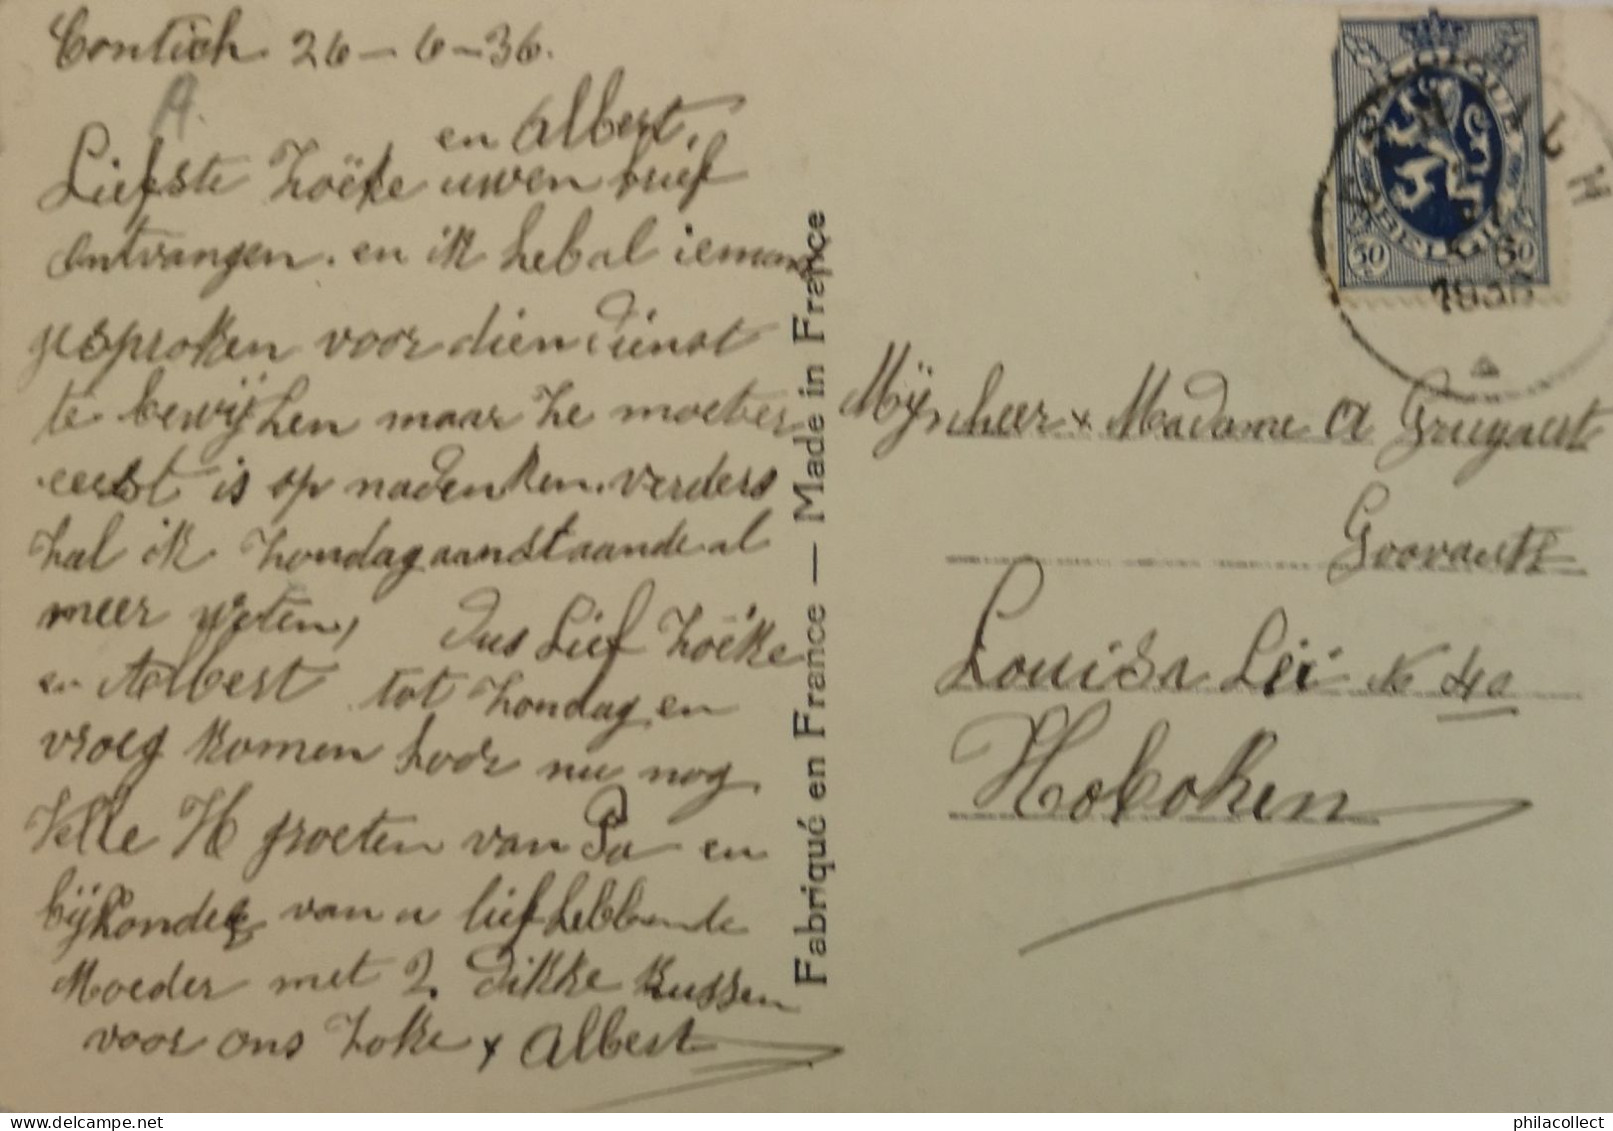 Contich 26-6-36.
A.
en Albert,
Liefste Zoëke uwen brief
ontvangen. en ik heb al iemand
gesproken voor dien dienst
te bewijzen maar ze moeter
eerst is op nadenken. verders
zal ik zondag aanstaande al
meer weten, dus Lief Zoëke
en Albert tot zondag en
vroeg komen hoor nu nog
Velle H groeten van Pa en
bijzonder van u liefhebbende
Moeder met 2. dikke kussen
voor ons Zoke x Albert
Fabriqué en France — Made in France
BELGIQUE
BELGIE
50 50
1936
Mijnheer x Madame A Gruyaert
Goovaerts
Louisa Lei No 40
Hoboken
philacollect - delcampe.net